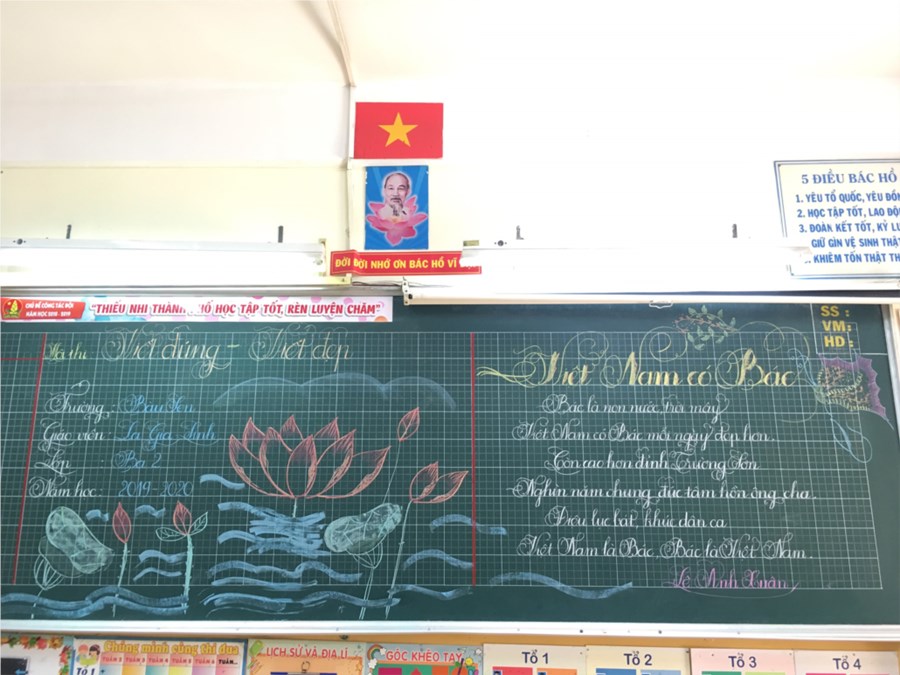 5 ĐIỀU BÁC HỒ
1. YÊU TỔ QUỐC, YÊU ĐỒN
2. HỌC TẬP TỐT, LAO ĐỘ
3. ĐOÀN KẾT TỐT, KỶ LU
GIỮ GÌN VỆ SINH THẬT
KHIÊM TỐN THẬT TH
ĐỜI ĐỜI NHỚ ƠN BÁC HỒ VĨ
CHỦ ĐỀ CÔNG TÁC ĐỘI
NĂM HỌC 2018 - 2019
"THIẾU NHI THÀNH HỐ HỌC TẬP TỐT, RÈN LUYỆN CHĂM"
Hội thi Viết đúng - Viết đẹp
Trường: Bàu Sen
Giáo viên: La Gia Linh
Lớp : Ba 2
Năm học: 2019-2020
Việt Nam có Bác
Bác là non nước, trời mây,
Việt Nam có Bác mỗi ngày đẹp hơn.
Còn cao hơn đỉnh Trường Sơn
Nghìn năm chung đúc tâm hồn ông cha.
Điệu lục bát, khúc dân ca
Việt Nam là Bác, Bác là Việt Nam.
Lê Anh Xuân
SS :
VM:
HD:
Tổ 1
Chúng mình cùng thi đua
TUẦN
LỊCH SỬ VÀ ĐỊA LÍ
GÓC KHÉO TAY
Tổ 1
Tổ 2
Tổ 3
Tổ 4